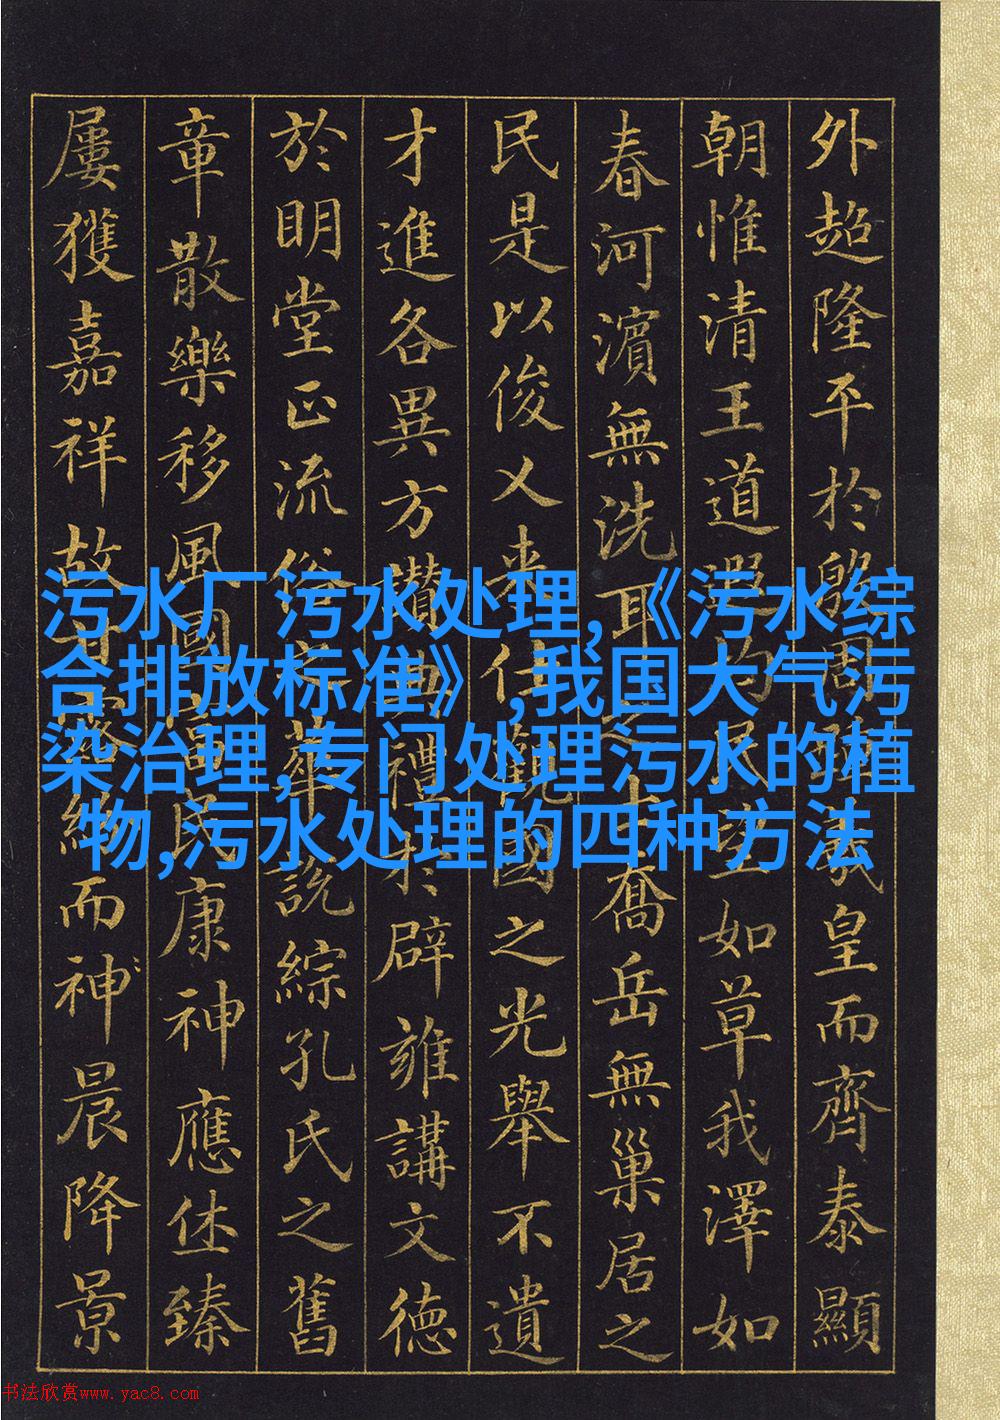 外超隆平於殷周踵羲皇而齊泰顯
朝惟清王道遐均民望如草我澤如
春河濱無洗耳之士喬岳無巢居之
民是以俊乂来仕觀國之光舉不遺
才進各異方讚典禮於辟雍講文德
於明堂正流俗之華説綜孔氏之舊
章散樂移風國富民康神應休臻
屢獲嘉祥故甘露紛而神晨降景
污水厂污水处理,《污水综
合排放标准》,我国大气污
染治理,专门处理污水的植
物,污水处理的四种方法
书法欣赏www.yac8.com